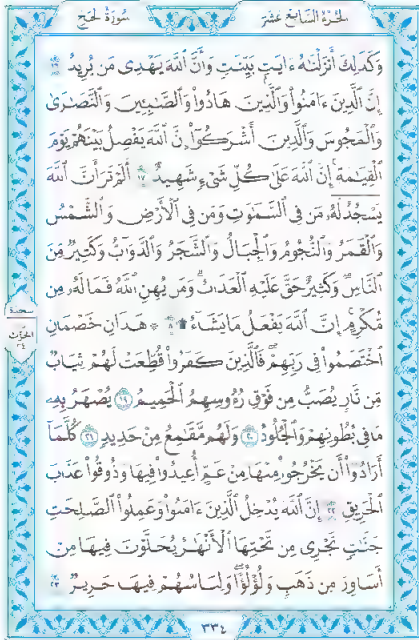 الجزء السابع عشر
سورة الحج
وَكَذَٰلِكَ أَنزَلْنَٰهُ ءَايَٰتٍۭ بَيِّنَٰتٍ وَأَنَّ ٱللَّهَ يَهْدِى مَن يُرِيدُ ١٦
إِنَّ ٱلَّذِينَ ءَامَنُوا۟ وَٱلَّذِينَ هَادُوا۟ وَٱلصَّٰبِـِٔينَ وَٱلنَّصَٰرَىٰ
وَٱلْمَجُوسَ وَٱلَّذِينَ أَشْرَكُوٓا۟ إِنَّ ٱللَّهَ يَفْصِلُ بَيْنَهُمْ يَوْمَ
ٱلْقِيَٰمَةِ إِنَّ ٱللَّهَ عَلَىٰ كُلِّ شَىْءٍ شَهِيدٌ ١٧ أَلَمْ تَرَ أَنَّ ٱللَّهَ
يَسْجُدُ لَهُۥ مَن فِى ٱلسَّمَٰوَٰتِ وَمَن فِى ٱلْأَرْضِ وَٱلشَّمْسُ
وَٱلْقَمَرُ وَٱلنُّجُومُ وَٱلْجِبَالُ وَٱلشَّجَرُ وَٱلدَّوَآبُّ وَكَثِيرٌ مِّنَ
ٱلنَّاسِ وَكَثِيرٌ حَقَّ عَلَيْهِ ٱلْعَذَابُ وَمَن يُهِنِ ٱللَّهُ فَمَا لَهُۥ مِن
مُّكْرِمٍ إِنَّ ٱللَّهَ يَفْعَلُ مَا يَشَآءُ ۩ ١٨ ۞ هَٰذَانِ خَصْمَانِ
ٱخْتَصَمُوا۟ فِى رَبِّهِمْ فَٱلَّذِينَ كَفَرُوا۟ قُطِّعَتْ لَهُمْ ثِيَابٌ
مِّن نَّارٍ يُصَبُّ مِن فَوْقِ رُءُوسِهِمُ ٱلْحَمِيمُ ١٩ يُصْهَرُ بِهِۦ
مَا فِى بُطُونِهِمْ وَٱلْجُلُودُ ٢٠ وَلَهُم مَّقَٰمِعُ مِنْ حَدِيدٍ ٢١ كُلَّمَآ
أَرَادُوٓا۟ أَن يَخْرُجُوا۟ مِنْهَا مِنْ غَمٍّ أُعِيدُوا۟ فِيهَا وَذُوقُوا۟ عَذَابَ
ٱلْحَرِيقِ ٢٢ إِنَّ ٱللَّهَ يُدْخِلُ ٱلَّذِينَ ءَامَنُوا۟ وَعَمِلُوا۟ ٱلصَّٰلِحَٰتِ
جَنَّٰتٍ تَجْرِى مِن تَحْتِهَا ٱلْأَنْهَٰرُ يُحَلَّوْنَ فِيهَا مِنْ
أَسَاوِرَ مِن ذَهَبٍ وَلُؤْلُؤًا وَلِبَاسُهُمْ فِيهَا حَرِيرٌ ٢٣
سجدة
الحزب
٣٤
٣٣٤